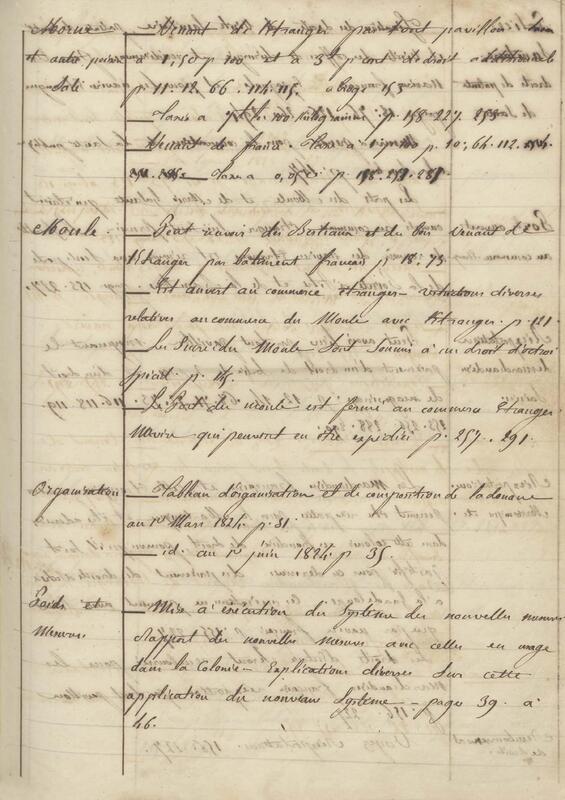 Morue — Venant de l'Etranger par tout pavillon
et autre poisson à 1,50 p 100 et à 3 p cent de droit
Salé p. 11. 12. 66. 114. 115. 153
— Taxée à les 100 kilogrammes. p. 158. 227. 253
— Venant de france. p. 10. 64. 112.
— Taxée à 0,05c p.
Moule. — Peut recevoir des Bestiaux et du bois venant de
l'Etranger par batiment francais p. 18. 73
— Est ouvert au commerce étranger — restrictions diverses
relatives au commerce du Moule avec l'Etranger. p. 111
— Les Sucre du Moule sont soumis à un droit d'octroi
spécial. p. 115.
— Le Port du moule est fermé au commerce Etranger
Navire qui peuvent en être expédiés p. 257. 291.
Organisation — Tableau d'organisation et de composition de la douane
au 1er Mars 1824. p. 31.
— id. au 1er juin 1824. p 35.
Poids et — Mise à exécution du Système des nouvelles mesures
Mesures Rapport des nouvelles mesures avec celles en usage
dans la Colonie — Explications diverses sur cette
application du nouveau Système — pages 39. à
46.